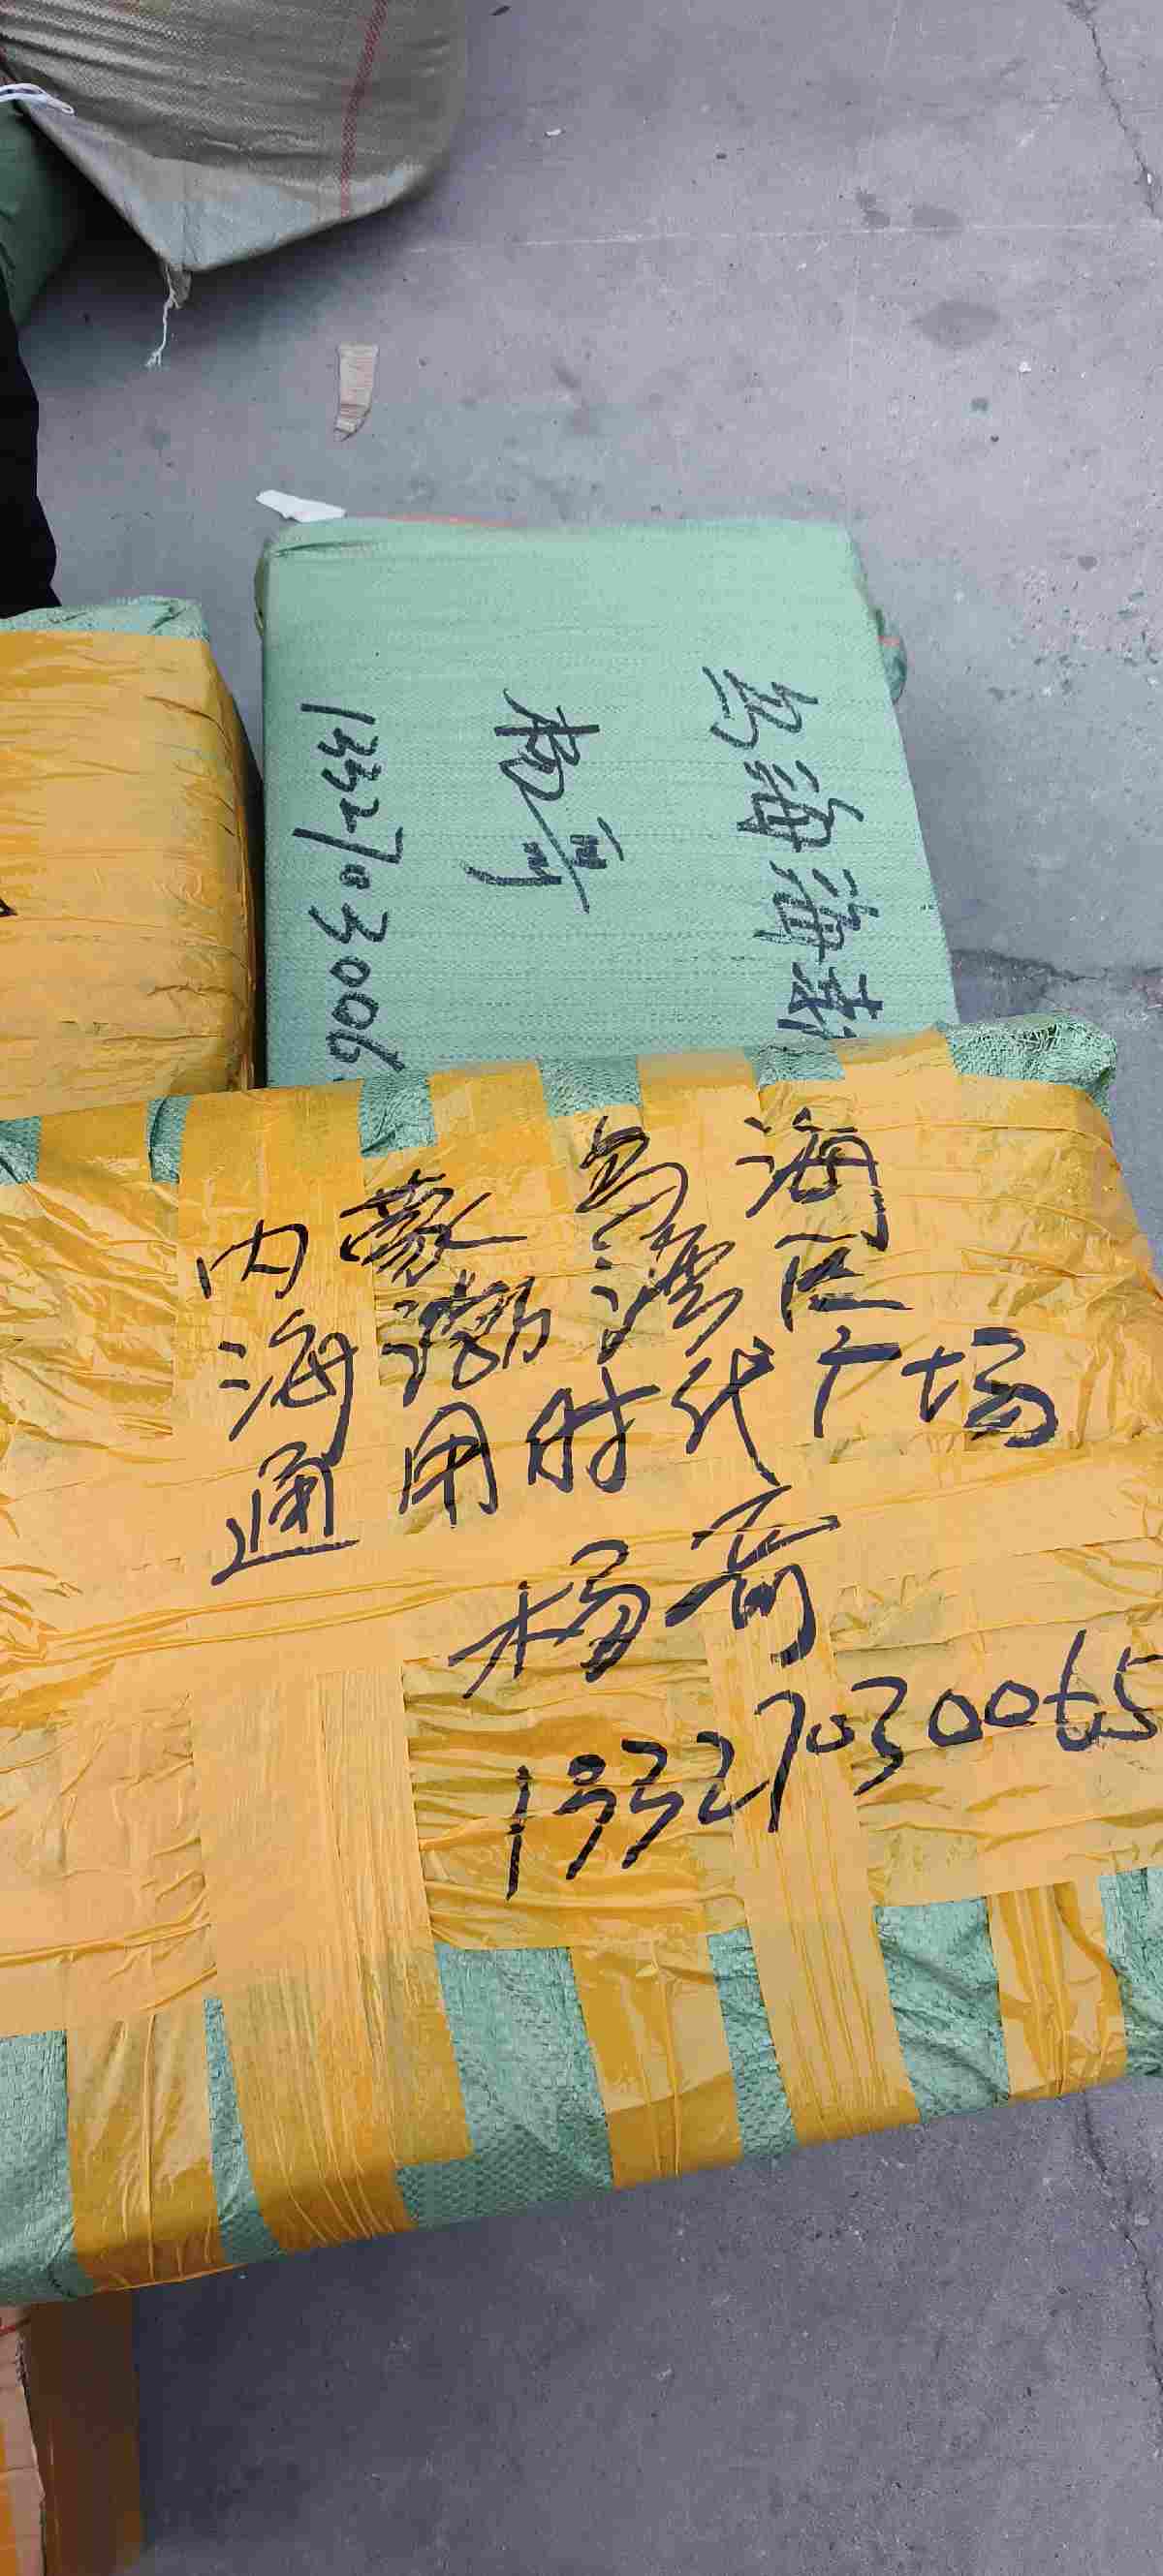 乌海海勃
杨商
1332703006
内蒙乌海
海勃湾区
通用时代广场
杨商
13327030065